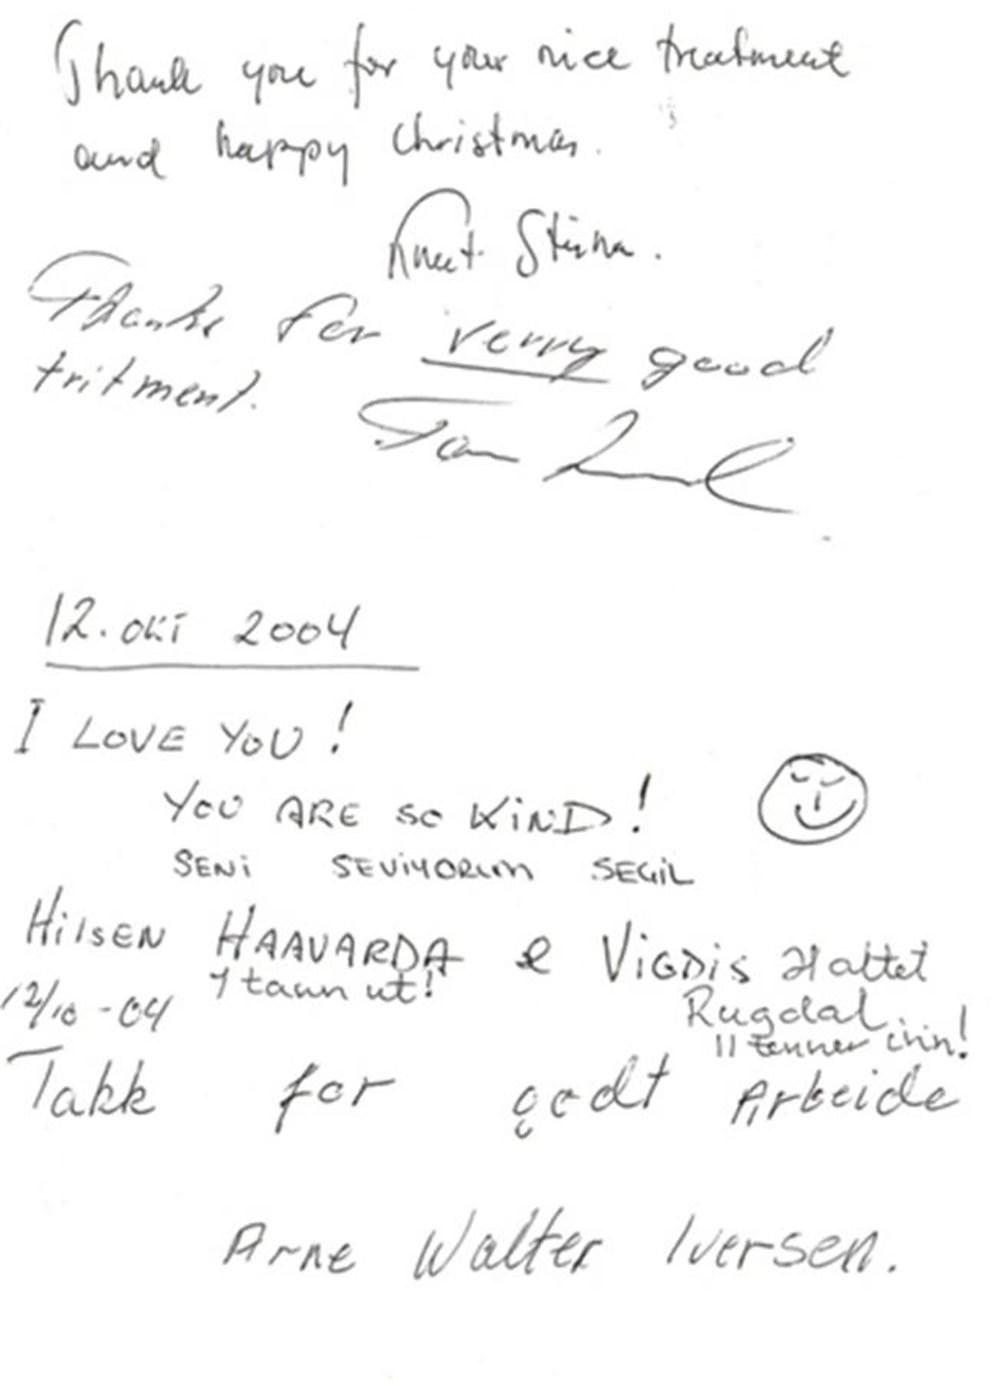 Thank you for your nice treatment
and happy christmas.
Knut
Thanks for verry good
tritment.
12. okt 2004
I LOVE YOU!
YOU ARE SO KiND!
SENi SEViYORUM
HilsEN HAAVARDA & ViGDis Hattet
1 tann ut! Rugdal
12/10 - 04 11 tenner inn!
Takk for godt Arbeide
Arne Walter Iversen.